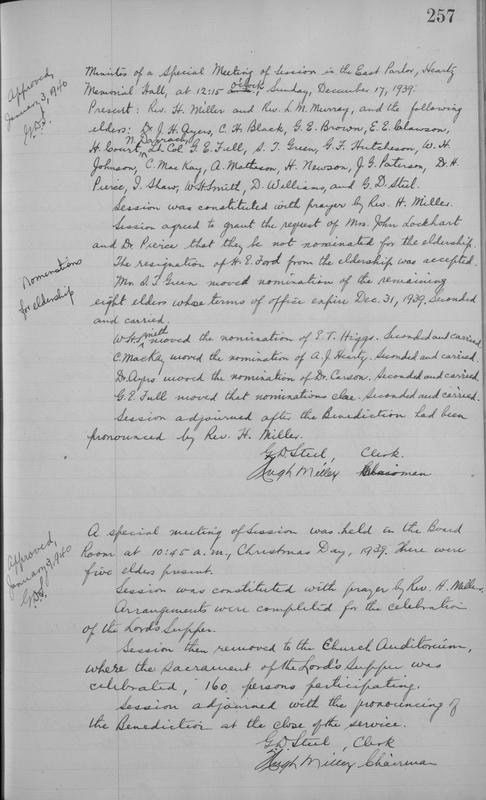 257
Approved,
January 3, 1940
G.D.S.
Minutes of a Special Meeting of Session in the East Parlor, Heartz
Memorial Hall, at 12:15 o'clock, Sunday, December 17, 1939.
Present: Rev. H. Miller and Rev. L. M. Murray, and the following
elders: Dr. J. H. Ayers, C. H. Black, G. E. Brown, E. E. Clawson,
H. Court, N. Darrach, Lt. Col. G. E. Full, S. T. Green, G. F. Hutcheson, W. H.
Johnson, C. MacKay, A. Matheson, H. Newson, J. G. Paterson, Dr. H.
Pierce, I. Shaw, W. H. Smith, D. Williams, and G. D. Steel.
Session was constituted with prayer by Rev. H. Miller.
Session agreed to grant the request of Mrs. John Lockhart
and Dr Pierce that they be not nominated for the eldership.
The resignation of H. E. Ford from the eldership was accepted.
Nominations
for eldership
Mr. S. T. Green moved nomination of the remaining
eight elders whose terms of office expire Dec. 31, 1939. Seconded
and carried.
W. H. Smith moved the nomination of E. T. Higgs. Seconded and carried.
C. MacKay moved the nomination of A. J. Hearty. Seconded and carried.
Dr. Ayers moved the nomination of Dr. Carson. Seconded and carried.
G. E. Full moved that nominations close. Seconded and carried.
Session adjourned after the Benediction had been
pronounced by Rev. H. Miller.
G. D. Steel, Clerk.
Hugh Miller Chairman
Approved,
January 3, 1940
G.D.S.
A special meeting of Session was held in the Board
Room at 10:45 a.m., Christmas Day, 1939. There were
five elders present.
Session was constituted with prayer by Rev. H. Miller.
Arrangements were completed for the celebration
of the Lord's Supper.
Session then removed to the Church Auditorium,
where the sacrament of the Lord's Supper was
celebrated, 160 persons participating.
Session adjourned with the pronouncing of
the Benediction at the close of the service.
G. D. Steel, Clerk
Hugh Miller Chairman